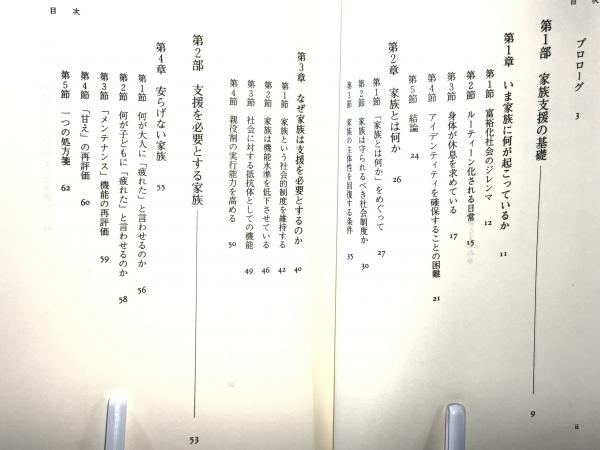 目次
プロローグ 3
第1部 家族支援の基礎 9
第1章 いま家族に何が起こっているか 11
第1節 富裕化社会のジレンマ 12
第2節 ルーティーン化される日常 15
第3節 身体が休息を求めている 17
第4節 アイデンティティを確保することの困難 21
第5節 結論 24
第2章 家族とは何か 26
第1節 「家族とは何か」をめぐって 27
第1節 家族は守られるべき社会制度か 30
第1節 家族の主体性を回復する条件 35
ii
目次
第3章 なぜ家族は支援を必要とするのか 40
第1節 家族という社会的制度を維持する 42
第2節 家族は機能水準を低下させている 46
第3節 社会に対する抵抗体としての機能 49
第4節 親役割の実行能力を高める 50
第2部 支援を必要とする家族 53
第4章 安らげない家族 55
第1節 何が大人に「疲れた」と言わせるのか 56
第2節 何が子どもに「疲れた」と言わせるのか 58
第3節 「メンテナンス」機能の再評価 59
第4節 「甘え」の再評価 60
第5節 一つの処方箋 62